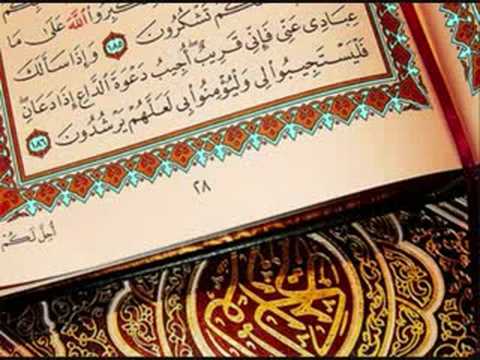 وَلِتُكَبِّرُوا۟ ٱللَّهَ عَلَىٰ مَا
كُمْ تَشْكُرُونَ ١٨٥ وَإِذَا سَأَلَكَ
عِبَادِى عَنِّى فَإِنِّى قَرِيبٌ أُجِيبُ دَعْوَةَ ٱلدَّاعِ إِذَا دَعَانِ
فَلْيَسْتَجِيبُوا۟ لِى وَلْيُؤْمِنُوا۟ بِى لَعَلَّهُمْ يَرْشُدُونَ ١٨٦
٢٨
أُحِلَّ لَكُمْ